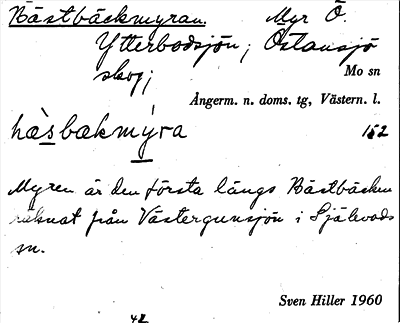 Hästbäckmyran. Myr Ö.
Ytterbodsjön; Östansjö
skog;
Mo sn
Ångerm. n. doms. tg, Västern. l.
hæ̀sbækmýra 152
Myren är den första längs Hästbäcken
räknat från Västergunsjön i Själevads
sn.
Sven Hiller 1960
42